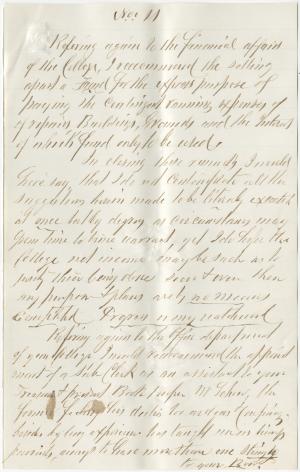 No 11
Refering again to the financial affairs
of the College, I recommend the setting
apart a Fund for the express purpose of
paying the Contingent running expenses of
repairs Buildings, Grounds and the Interest
of which fund only to be used.
In closing these remarks I would
here say that I do not contemplate all the
suggestions herein made to be literaly
at once but by degrees as circumstances may
from time to time warrant, yet I do hope the
College net income may be such as to
their being done soon & even then
my purpose & plans are by no means
Completed Progress is my watchword
Refering again to the Office department
of your College I would recommend the appoint
ment of a Sub Clerk as an assistant to your
Treasurer & present Book Keeper Mr
the former
by long experience has taught
to have more than one
to your